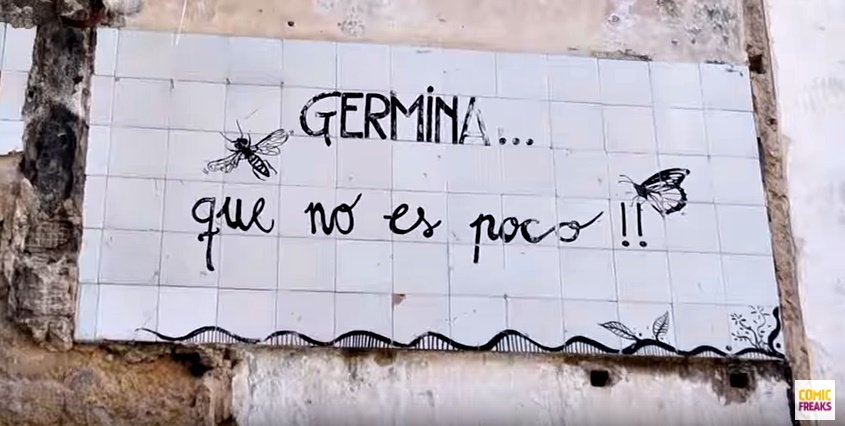 GERMINA...
que no es poco !!
COMIC
FREAKS